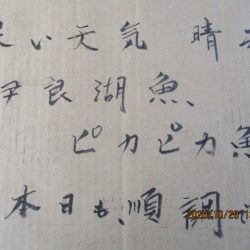 良い天気 晴
伊良湖魚、
ピカピカ魚
本日も、順調
2020/10/20